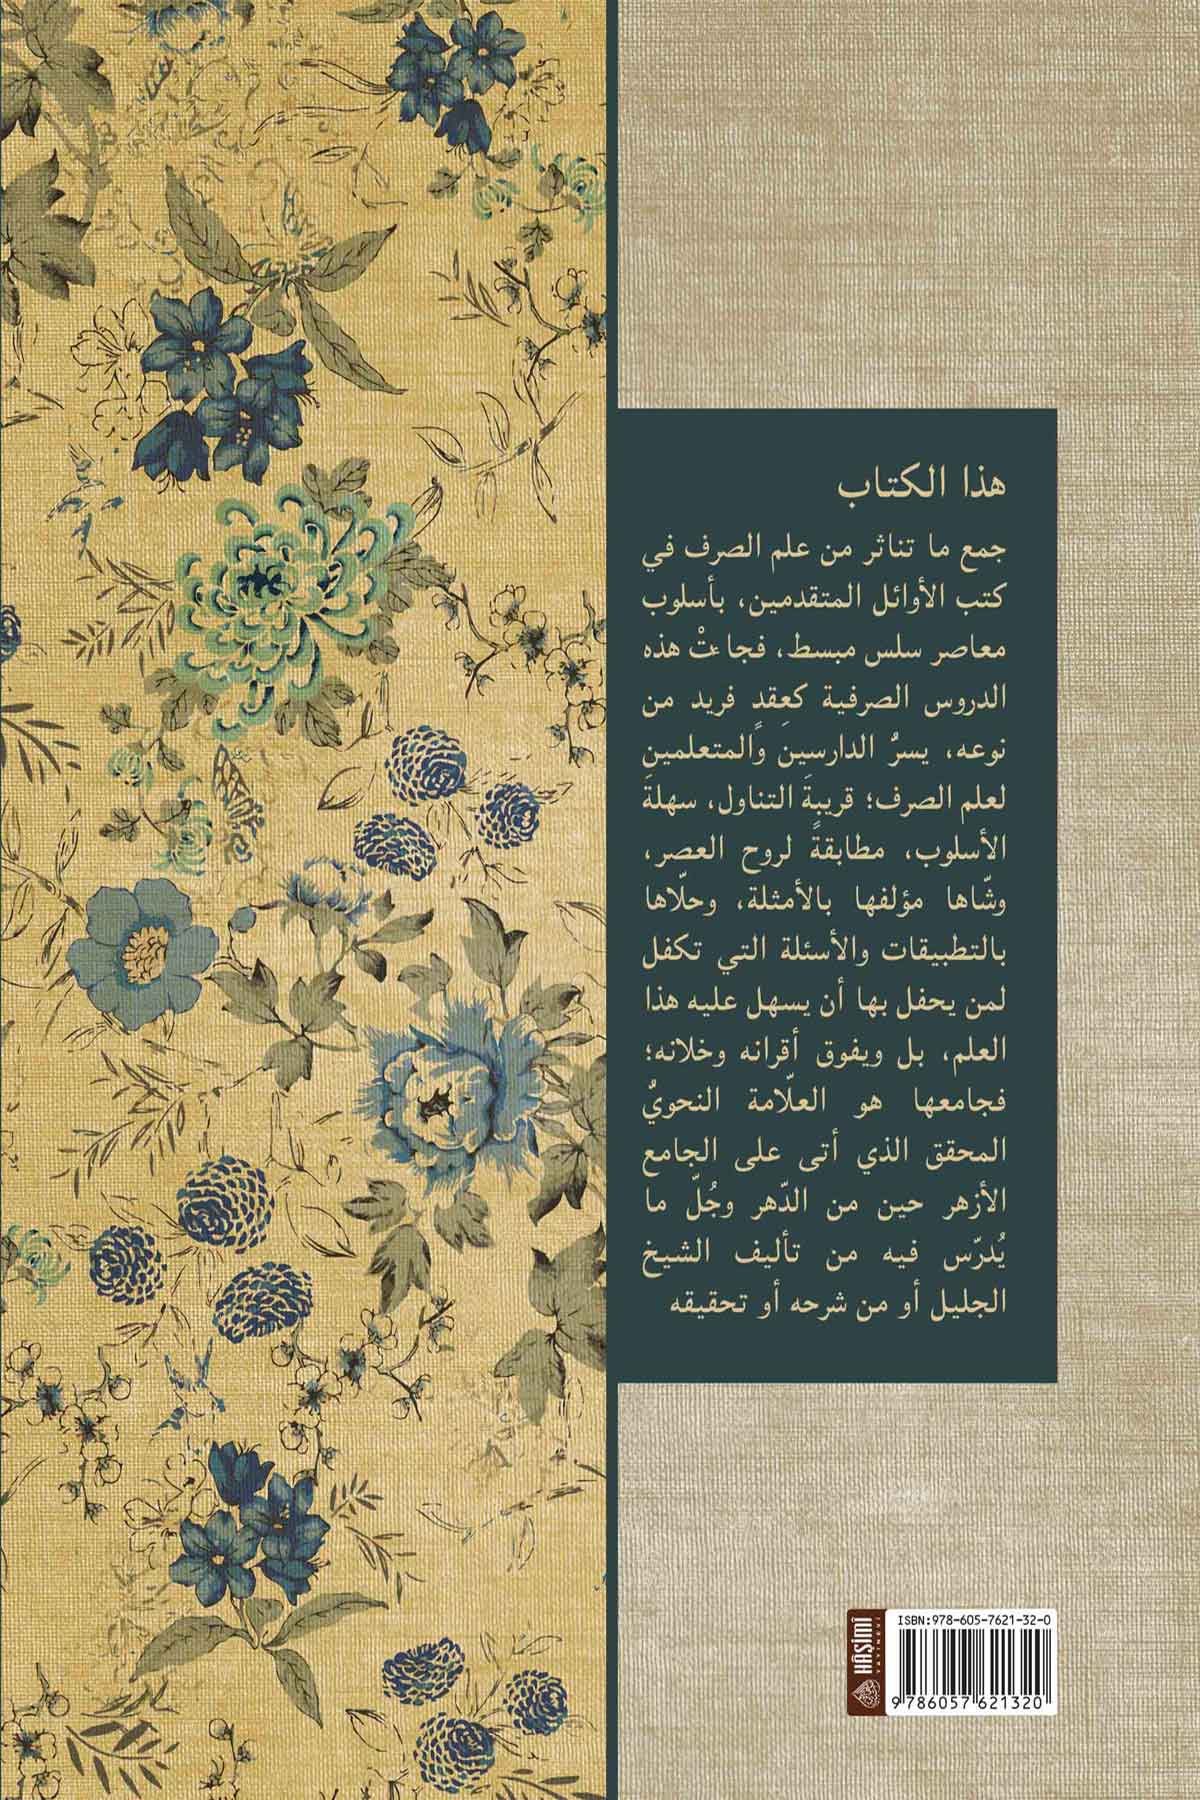 هذا الكتاب
جمع ما تناثر من علم الصرف في
كتب الأوائل المتقدمين، بأسلوب
معاصر سلس مبسط، فجاءتْ هذه
الدروس الصرفية كعِقدٍ فريد من
نوعه، يسرُّ الدارسينَ والمتعلمين
لعلم الصرف؛ قريبةَ التناول، سهلةَ
الأسلوب، مطابقةً لروح العصر،
وشّاها مؤلفها بالأمثلة، وحلّاها
بالتطبيقات والأسئلة التي تكفل
لمن يحفل بها أن يسهل عليه هذا
العلم، بل ويفوق أقرانه وخلانه؛
فجامعها هو العلّامة النحويُّ
المحقق الذي أتى على الجامع
الأزهر حين من الدّهر وجُلّ ما
يُدرّس فيه من تأليف الشيخ
الجليل أو من شرحه أو تحقيقه
HÂŞİMÎ
YAYINEVİ
ISBN: 978-605-7621-32-0
9 786057 621320